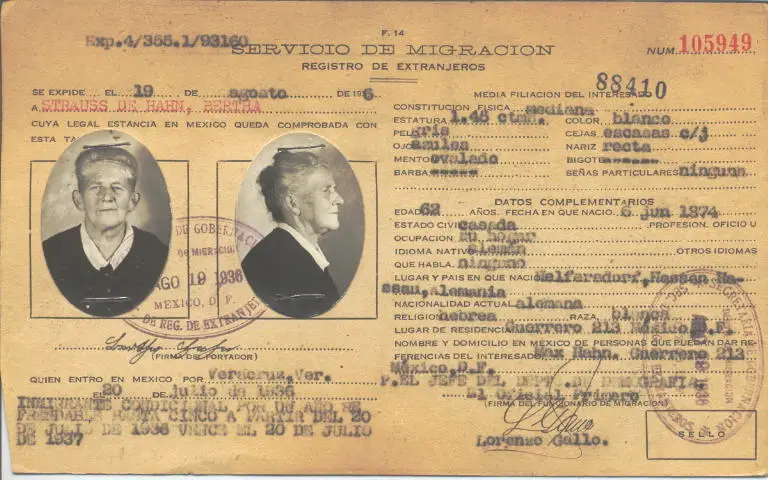 F. 14
Exp.4/355.1/93160
SERVICIO DE MIGRACION
NUM. 105949
REGISTRO DE EXTRANJEROS
88410
SE EXPIDE EL 19 DE agosto DE 1936
A STRAUSS DE HAHN, BERTHA
CUYA LEGAL ESTANCIA EN MEXICO QUEDA COMPROBADA CON
ESTA TA
AGO 19 1936
MEXICO, D. F.
DE REG. DE EXTRANJE
(FIRMA DEL PORTADOR)
QUIEN ENTRO EN MEXICO POR Veracruz,Ver.
EL 20 DE julio de 1936
INMIGRANTE CONDICIONAL POR UN AÑO RE
FRENDABLE HASTA CINCO A PARTIR DEL 20
DE JULIO DE 1936 VENCE EL 20 DE JULIO
DE 1937
MEDIA FILIACION DEL INTERESADO
CONSTITUCION FISICA mediana
ESTATURA 1.48 ctms. COLOR blanco
PELO gris CEJAS escasas c/j
OJOS azules NARIZ recta
MENTO ovalado BIGOTE
BARBA SEÑAS PARTICULARES ninguna
DATOS COMPLEMENTARIOS
EDAD 62 AÑOS. FECHA EN QUE NACIO. 6 jun 1874
ESTADO CIVIL casada .PROFESION, OFICIO U
OCUPACION su hogar
IDIOMA NATIVO Alemán .OTROS IDIOMAS
QUE HABLA. ninguno
LUGAR Y PAIS EN QUE NACIO Welfersdorf, Hessen Na-
ssau, Alemania
NACIONALIDAD ACTUAL alemana
RELIGION hebrea RAZA. blanca
LUGAR DE RESIDENCIA Guerrero 213 México, D.F.
NOMBRE Y DOMICILIO EN MEXICO DE PERSONAS QUE PUEDAN DAR RE-
FERENCIAS DEL INTERESADO Max Hahn. Guerrero 213
México,D.F
P.EL JEFE DEL DEPT. DE DEMOGRAFIA
El Oficial Primero
(FIRMA DEL FUNCIONARIO DE MIGRACION)
Lorenzo Gallo.
SELLO